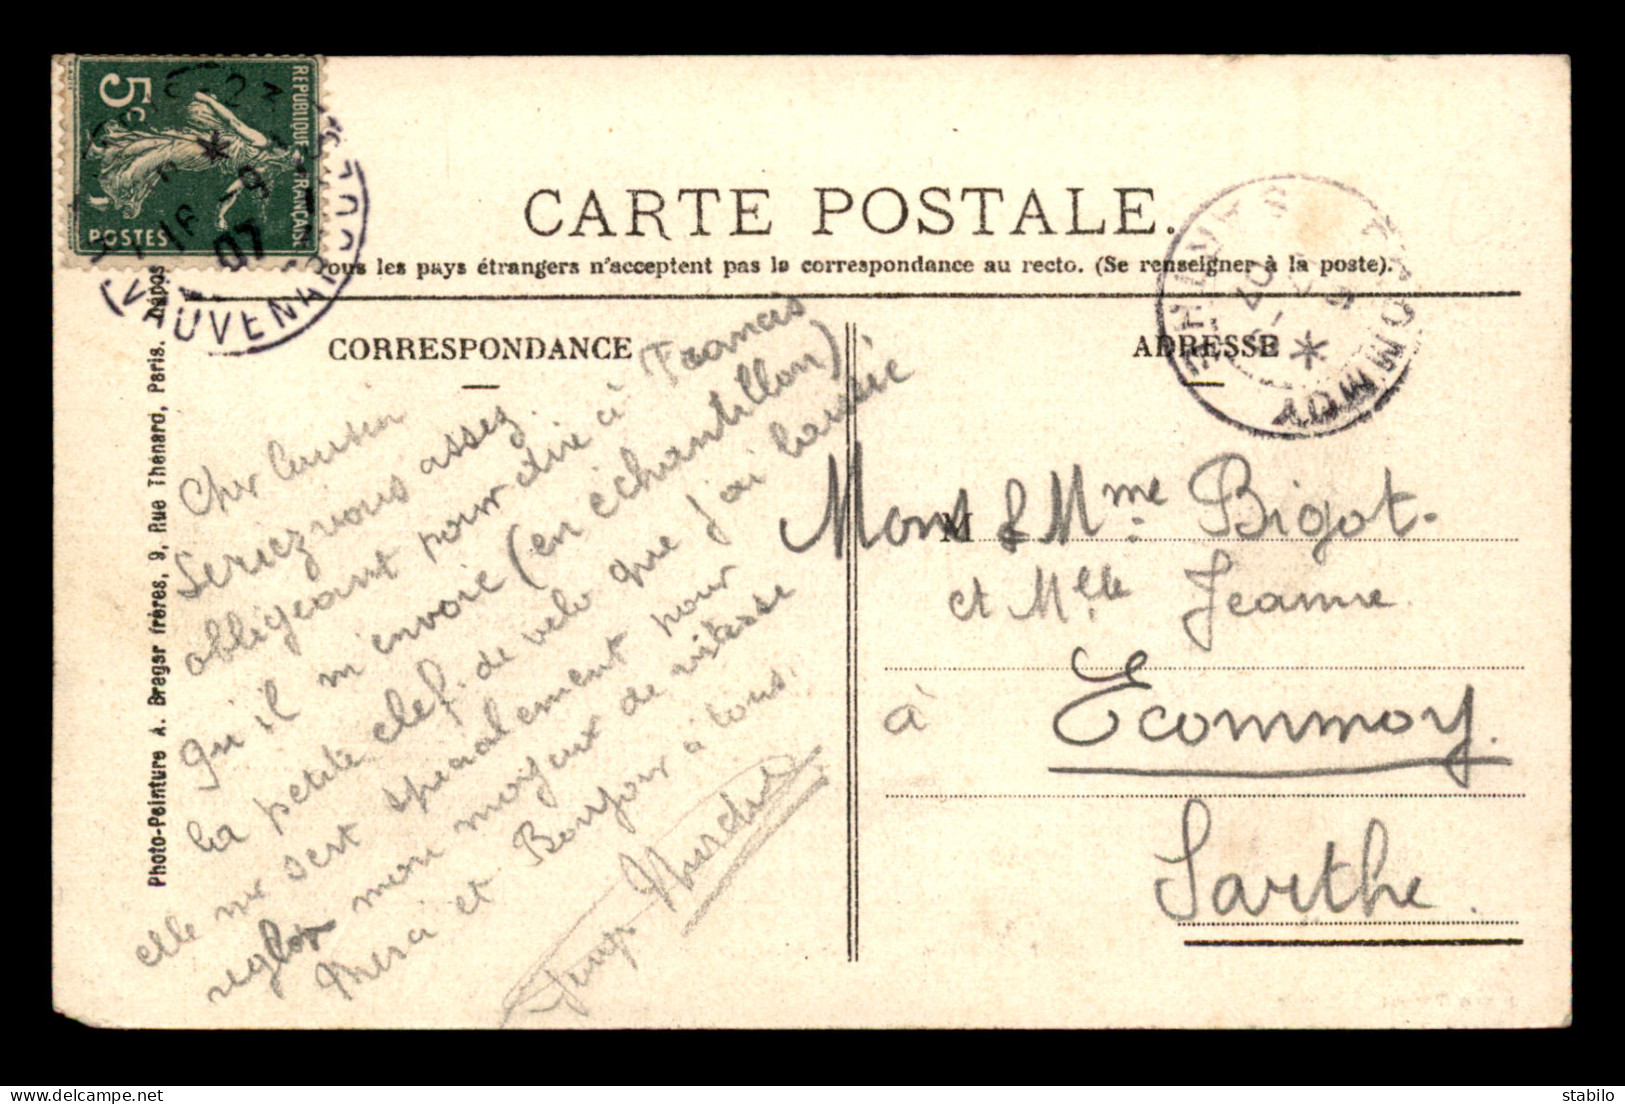 RÉPUBLIQUE FRANÇAISE
5c
POSTES
16 -9
07
VAUVENARGUES
CARTE POSTALE.
Tous les pays étrangers n'acceptent pas la correspondance au recto. (Se renseigner à la poste).
CORRESPONDANCE
ADRESSE
ECOMMOY
SARTHE
Photo-Peinture A. Breger frères, 9, Rue Thenard, Paris.
Cher Cousin
Seriez vous assez
obligeant pour dire à Francis
qu'il m'envoie (en échantillon)
la petite clef de velo que j'ai laissée
elle me sert specialement pour
regler mon moyeux de vitesse
Merci et Bonjour à tous.
M
Mons & Mme Bigot.
et Melle Jeanne
à Ecommoy.
Sarthe.
delcampe.net
stabilo